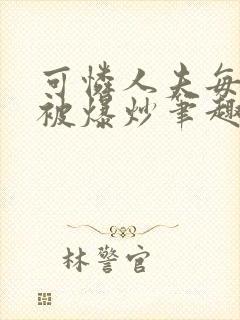 可怜人夫每
被爆炒笔趣
林警官